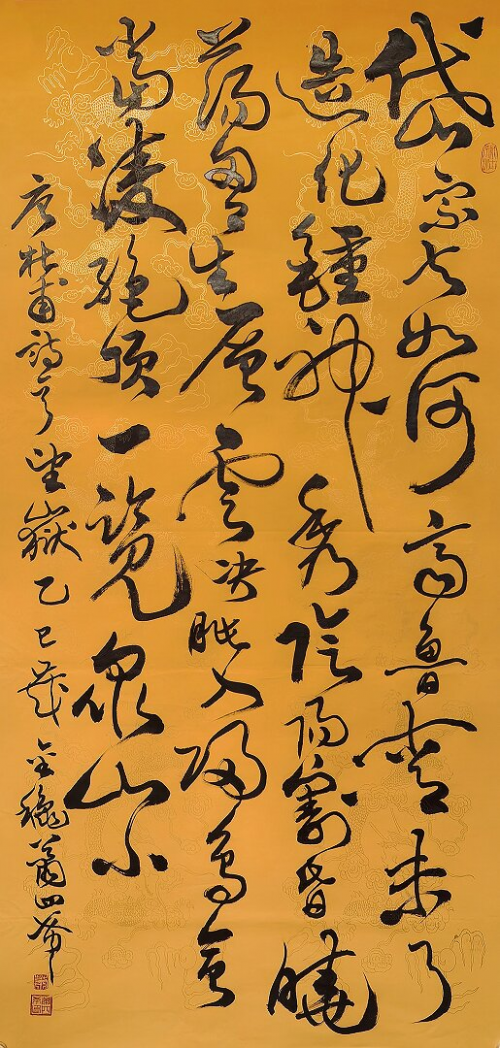 岱宗夫如何齊魯青未了
造化鍾神秀陰陽割昏曉
蕩胸生層雲決眥入歸鳥會
當凌絕頂一覽眾山小
唐杜甫詩 望嶽乙巳歲金穐蕭